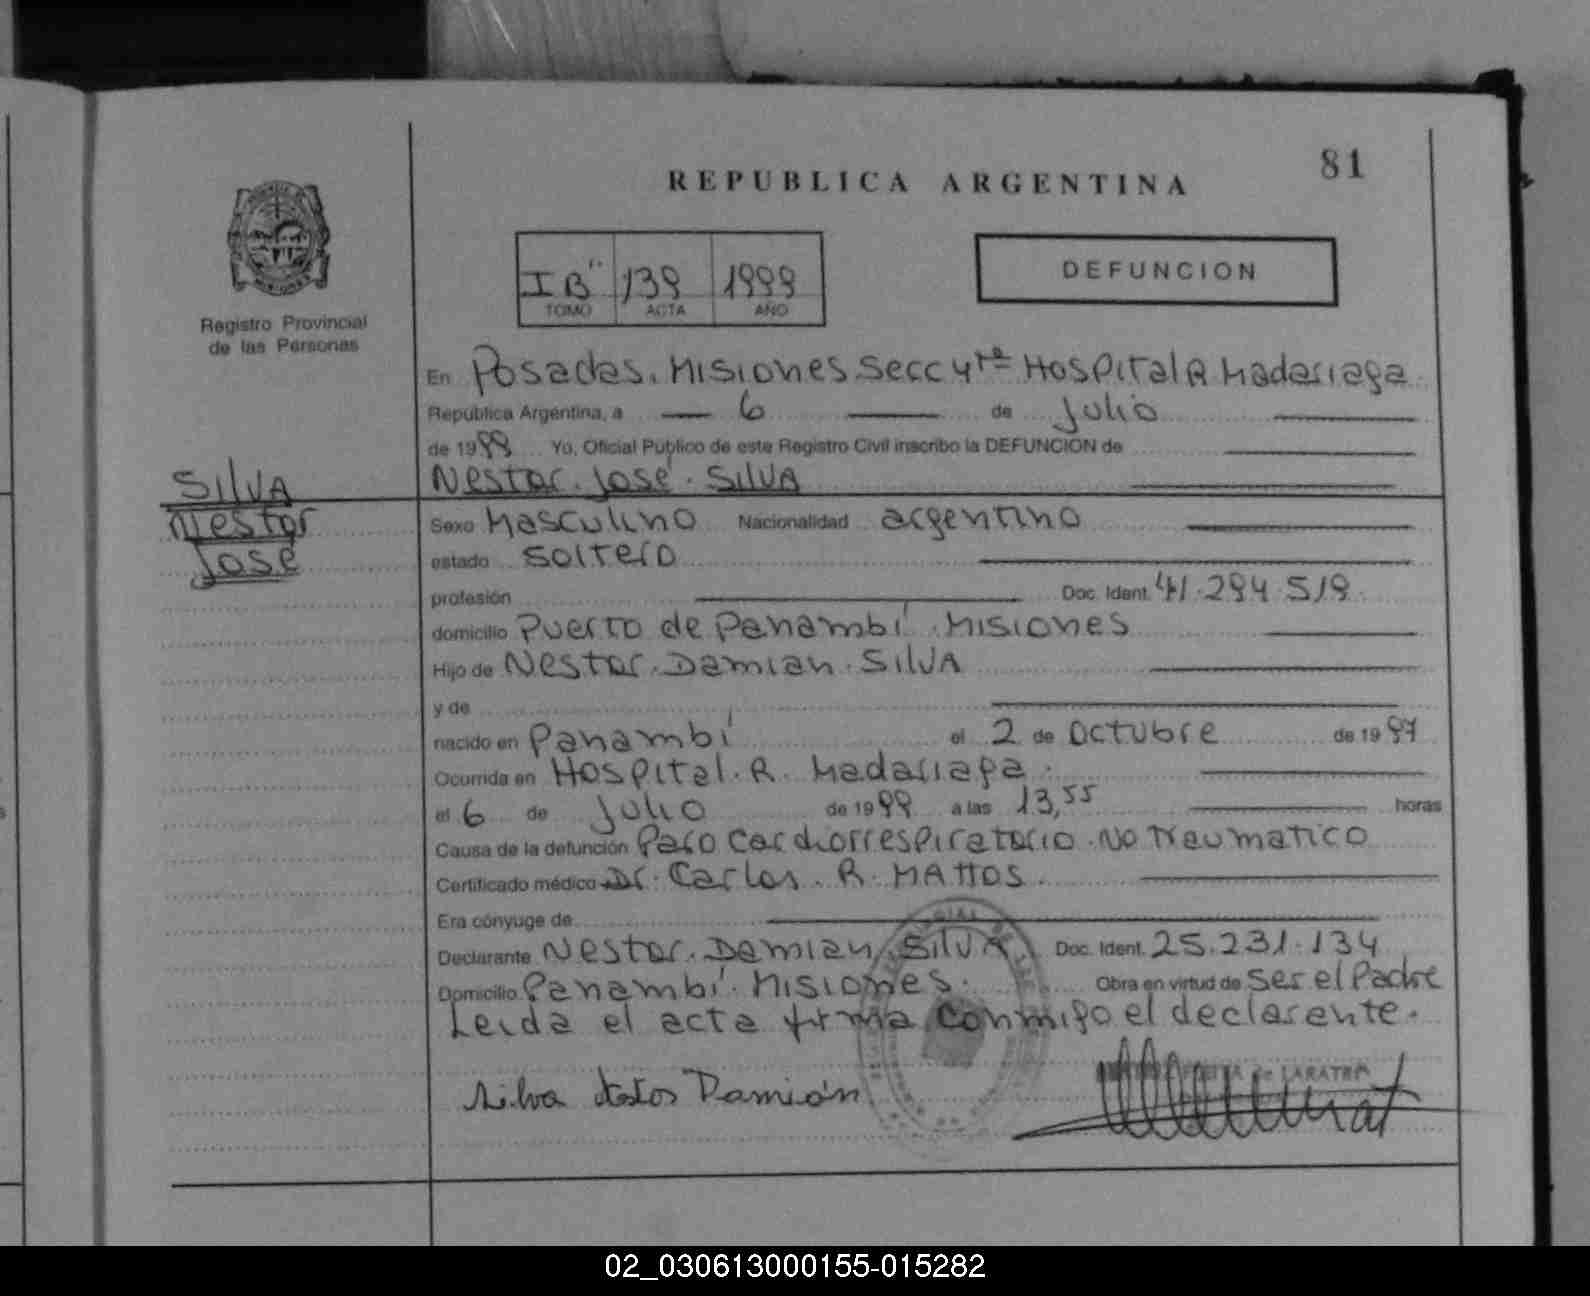 81
REPUBLICA ARGENTINA
IB" 139 1999
TOMO ACTA AÑO
DEFUNCION
Registro Provincial
de las Personas
En Posadas. Misiones. Secc 4ta Hospital R. Madariaga
República Argentina, a 6 de Julio
de 1999 Yo, Oficial Público de este Registro Civil inscribo la DEFUNCION de
SILVA
Nestor
José
Nestor. José. SILVA
Sexo Masculino Nacionalidad argentino
estado soltero
profesión Doc. Ident. 41.294.519
domicilio Puerto de Panambí. Misiones
Hijo de Nestor. Damian. SILVA
y de
nacido en Panambí el 2 de octubre de 1997
Ocurrida en Hospital. R. Madariaga.
el 6 de Julio de 1999 a las 13,55 horas
Causa de la defunción Paro cardiorrespiratorio. No traumatico
Certificado médico Dr. Carlos. R. MATTOS.
Era cónyuge de
Declarante Nestor. Damian. SILVA Doc. Ident. 25.231.134
Domicilio Panambí. Misiones. Obra en virtud de ser el Padre
Leida el acta firma conmigo el declarente.
Silva Damián
02_030613000155-015282